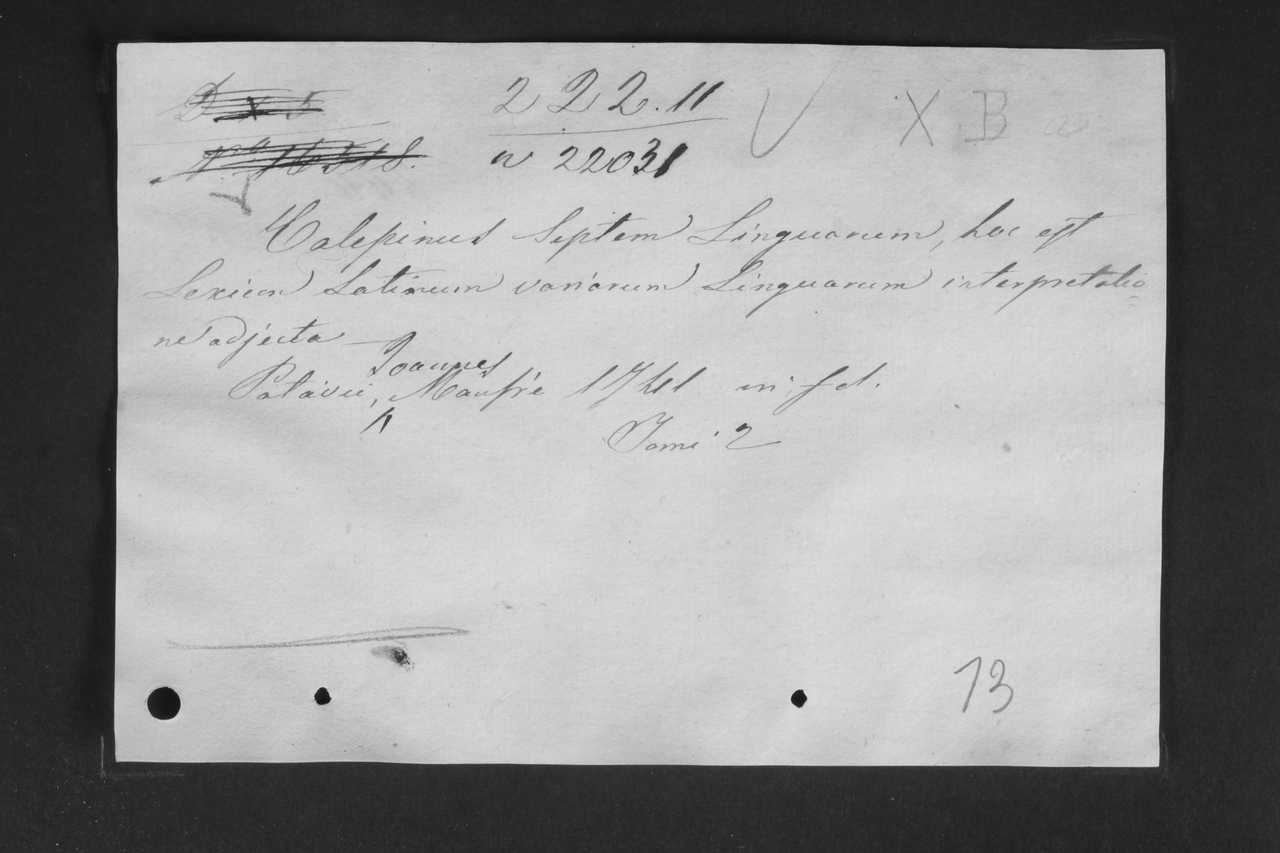 222.11
X B
n 22031
Calepinus Septem Linguarum, hoc est
Lexicon Latinum variarum Linguarum interpretatio
ne adjecta
Joannes
Patavii, Manfrè 1741 in fol.
Tomi 2
13